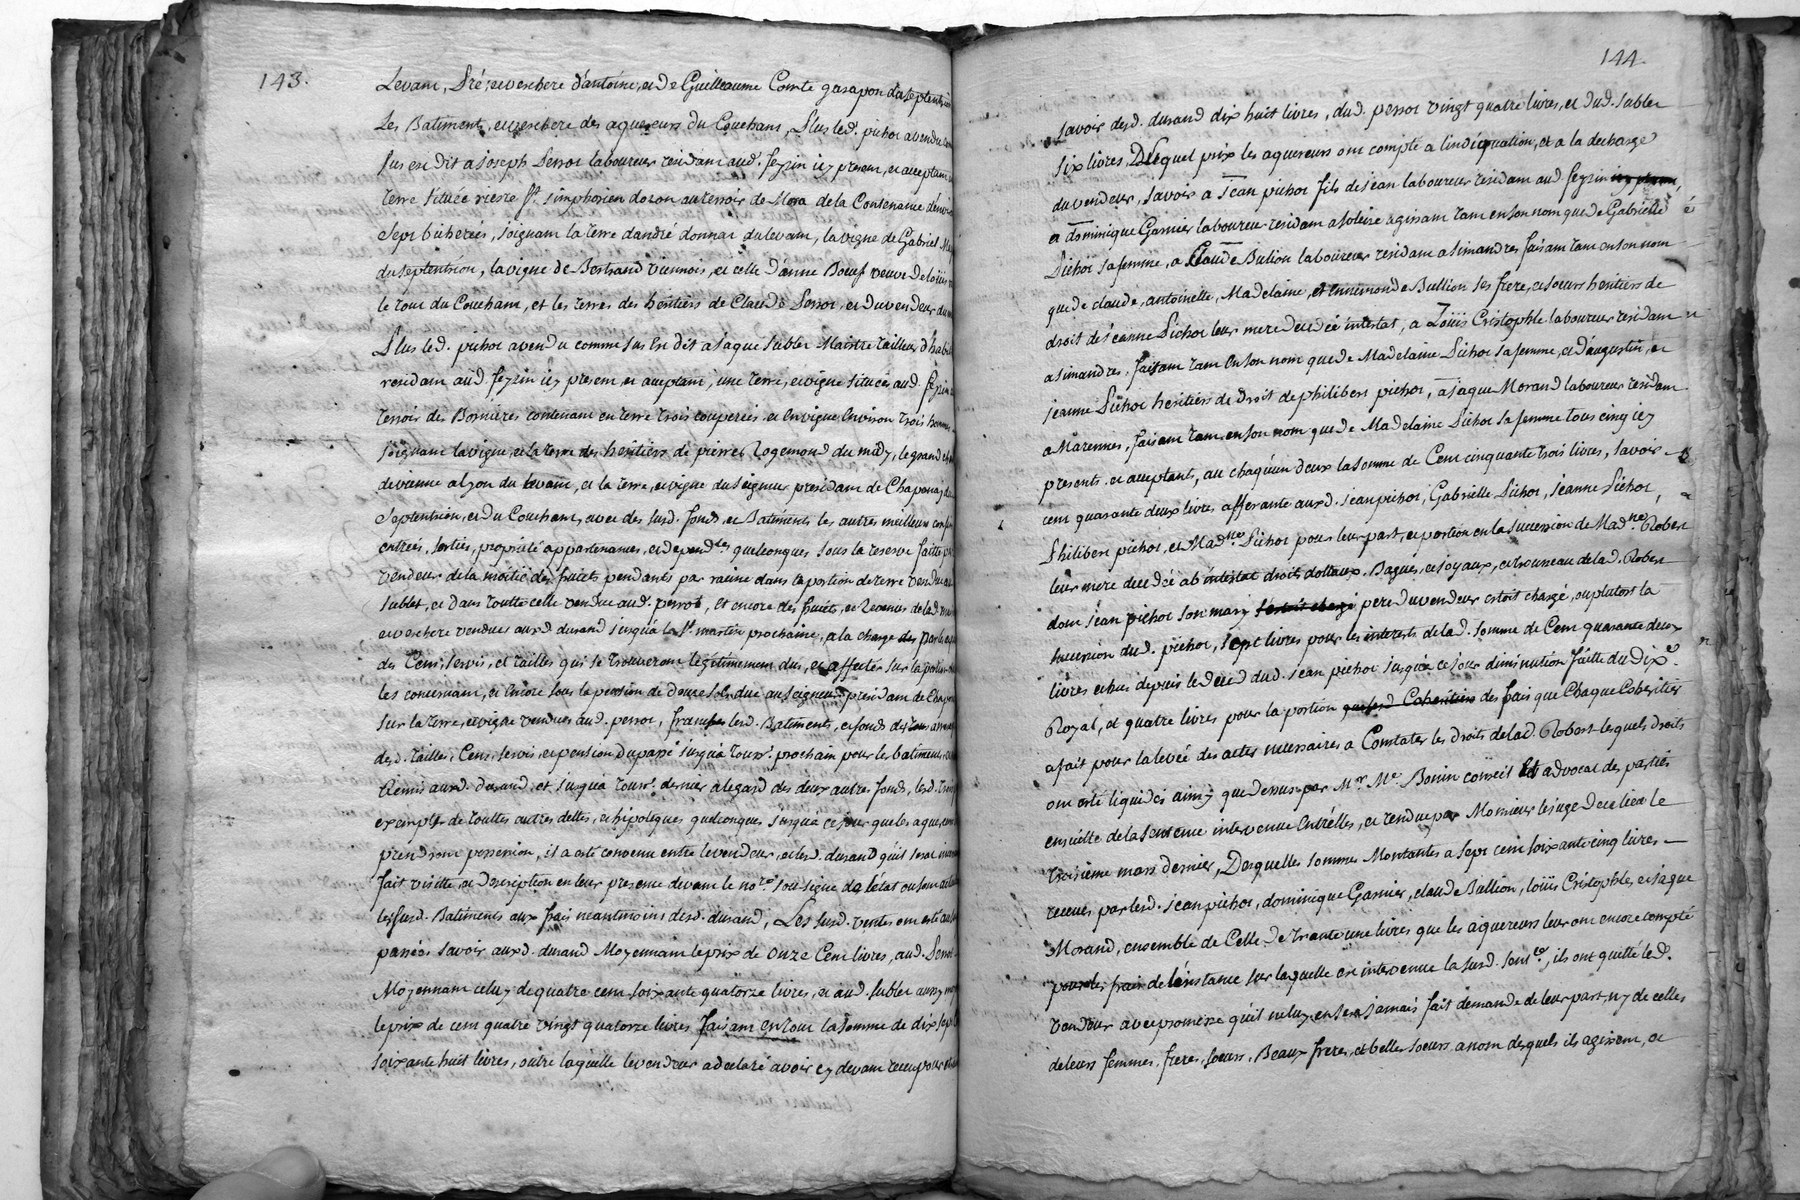 143.
Levant, pré, et verchere d'antoine, et de Guilleaume Comte garapon du septentrion
Les Batiments, et verchere des aquereurs du Couchant, Plus led. pichot a vendu
sus est dit a joseph Perrot laboureur residant aud. feyzin icy present, et acceptant
terre située riere St. simphorien dozon au terroir de Mora de la Contenance d'environ
sept bicherées, joignant la terre d'andré donnat du levant, la vigne de Gabriel
du septentrion, la vigne de Bertrand Viennois, et celle d'anne Boeuf veuve de loüis
le tout du Couchant, et les terres des héritiers de Claude Perrot, et du vendeur du
Plus led. pichot a vendu comme sus est dit a jaque sublet Maistre tailleur d'habit
residant aud. feyzin icy present, et acceptant, une terre, et vigne situées aud. feyzin
terroir de Bornieres contenant en terre trois couperées et en vigne environ trois hommées
joignant la vigne, et la terre des héritiers de pierre Rogemond du midy, le grand
de vienne a lyon du levant, et la terre, et vigne du seigneur president de Chaponay
Septentrion, et du Couchant, avec des susd. fonds, et Batiments les autres meilleurs confins
entrées, sorties, proprieté appartenances, et depend.tes quelconques sous la reserve faitte par
vendeur de la moitié des fruits pendants par racine dans la portion de terre vendue
sublet, et dans toutte celle vendue aud. perrot, et encore des fruits, et revenus de lad.
et verchere vendues aux d. durand jusqu'a la St. martin prochaine, a la charge des par les
des Cens, servis, et tailles qui se trouveront legitimement dus, et affectés sur la portion
les concernant, et encore sous la pension de douze sols due au seigneur president de Chaponay
sur la terre, et vigne vendues aud. perrot, franches lesd. Batiments, et fonds de tous
desd. tailles, Cens, servis, et pension du passé jusqu'a touss.t prochain pour le batiment
Remis aux d. durand, et jusqu'a touss.t dernier a legard des deux autres fonds, lesd.
exempts de touttes autres dettes, et hipoteques quelconques jusqu'a ce jour que les aquereurs
prendront possession, il a esté convenu entre le vendeur, et lesd. durand qu'il seroit
fait visitte, et description en leur presence devant le no.re soussigné de l'état ou sont
lesd. Batiments aux frais neantmoins desd. durand, Les susd. ventes ont esté
passées savoir aux d. durand Moyennant le prix de onze Cent livres, aud. Perrot
Moyennant celuy de quatre cent soixante quatorze livres, et aud. sublet aussy
le prix de cent quatre vingt quatorze livres faisant en tout la somme de dix sept
soixante huit livres, outre laquelle le vendeur a declaré avoir cy devant receu pour
144.
savoir desd. durand dix huit livres, dud. perrot vingt quatre livres, et dud. sublet
six livres, Duquel prix les aquereurs ont compté a l'indiquation, et a la decharge
du vendeur, savoir a jean pichot fils de jean laboureur residant aud feyzin
et dominique Garnier laboureur residant a solaire agissant tant en son nom que de Gabrielle
Pichot sa femme, a Claude Bulion laboureur residant a simandres faisant tant en son nom
que de claude, antoinette, Madelaine, et Ennemonde Bullion ses frere, et soeurs héritiers de
droit de jeanne Pichot leur mere decedée intestat, a Loüis Cristophle laboureur residant
a simandres, faisant tant en son nom que de Madelaine Pichot sa femme, et d'augustin, et
jeanne Pichot heritiers de droit de philibert pichot, a jaque Morand laboureur residant
a Marennes, faisant tant en son nom que de Madelaine Pichot sa femme tous cinq icy
presents et acceptants, a chaqu'un d'eux la somme de Cent cinquante trois livres, savoir
cent quarante deux livres afferante auxd. jean pichot, Gabrielle Pichot, jeanne Pichot,
Philibert pichot, et Mad.ne Pichot pour leur part, et portion en la succession de Mad.ne Robert
leur mere decedée ab intestat droits dottaux, Bagues, et joyaux, et trousseau de lad. Robert
dont jean pichot son mary pere du vendeur estoit chargé, ou plutost la
succession dud. pichot, sept livres pour les interets de lad. somme de Cent quarante deux
livres echus depuis le deced dud. jean pichot jusqu'a ce jour diminution faitte du dix.e
Royal, et quatre livres pour la portion que lesd Coheritiers des frais que Chaque Coheritier
a fait pour la levée des actes necessaires a Constater les droits de lad. Robert lesquels droits
ont esté liquidés ainsy que dessus par Mr. Me. Bonin conseil Et advocat des parties
ensuitte de la sentence intervenue entr'elles, et rendue par Monsieur le juge de ce lieu le
troisieme mars dernier, Desquelles sommes Montantes a sept cent soixante cinq livres
receues par lesd. jean pichot, dominique Garnier, claude Bullion, loüis Cristophle, et jaque
Morand, ensemble de Celle de trante une livres que les aquereurs leur ont encore compté
pour les frais de l'instance sur laquelle est intervenue la susd. sent.ce, ils ont quitté led.
vendeur avec promesse qu'il ne luy en sera jamais fait demande de leur part, ny de celles
de leurs femmes, freres, soeurs, Beaux freres, et belles soeurs au nom desquels ils agissent, et